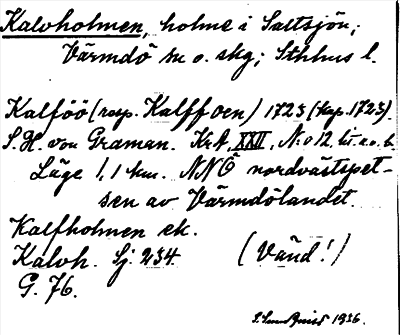 Kalvholmen, holme i Saltsjön;
Värmdö sn o. skg; Sthlms l.
Kalföö (resp. Kalffoen) 1723 (Kop. 1723).
S. H. von Graman. KrA, XXII, N:o 12, litt. a. o. b.
Läge 1,1 km. NNÖ nordvästspet-
sen av Värmdölandet.
Kalfholmen ek.
Kalvh. Sj. 234 (Vänd!)
G. 76.
1936.